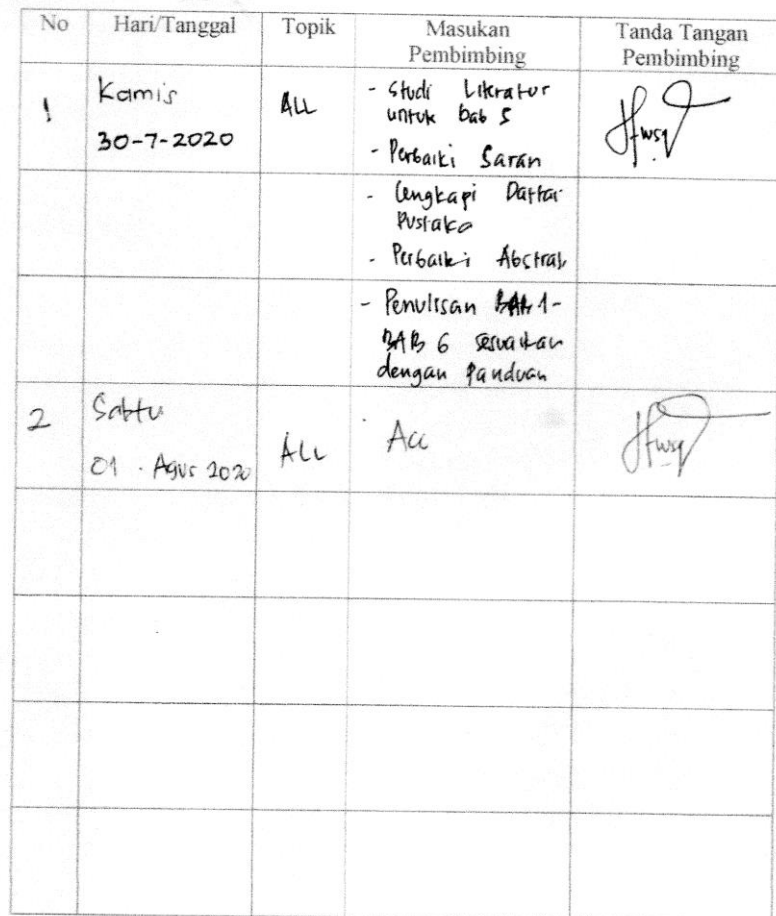 No Hari/Tanggal Topik Masukan Pembimbing Tanda Tangan Pembimbing
1 Kamis ALL - Studi Literatur
30-7-2020 untuk bab 5
- Perbaiki Saran
- Lengkapi Daftar
Pustaka
- Perbaiki Abstrak
- Penulisan BAB 1-
BAB 6 sesuaikan
dengan panduan
2 Sabtu ALL Acc
01 . Agus 2020